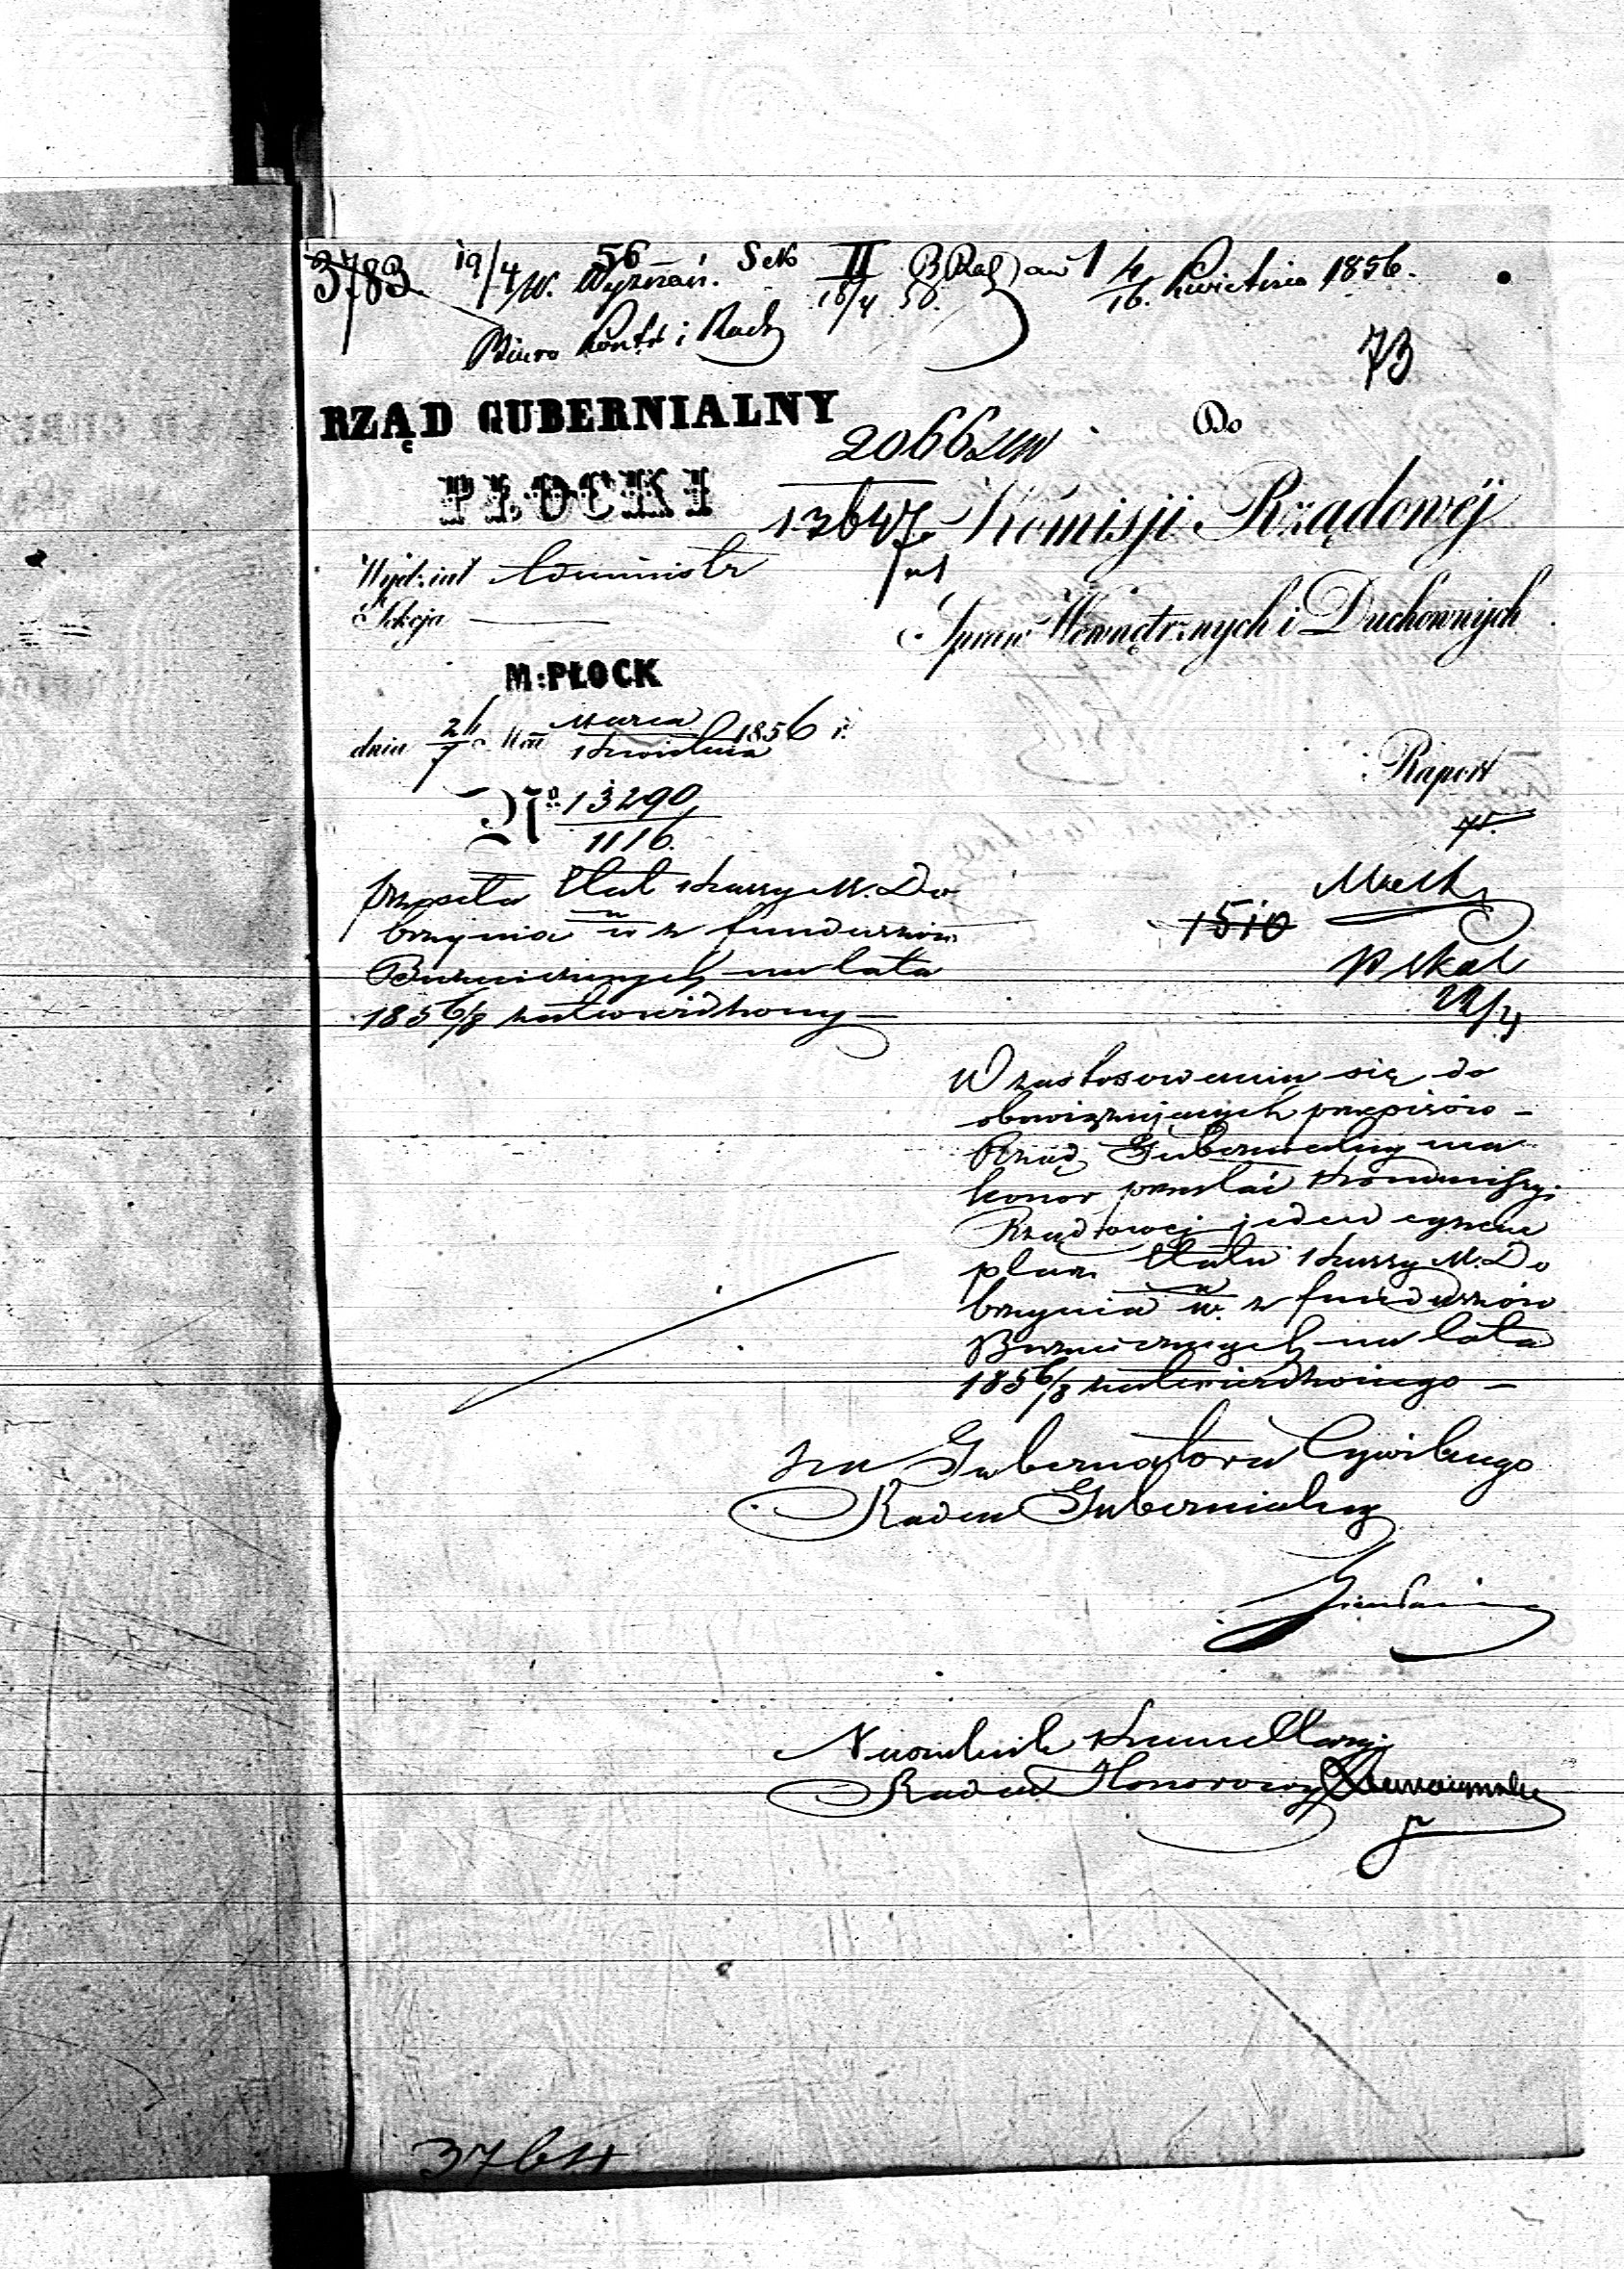 3783. 19/4 56 Sek II B Rap) 4/16. Kwietnia 1856.
W. Wyznań. 18/4 56.
Biuro Kontr i Rach
73
RZĄD GUBERNIALNY
PŁOCKI
2066
13647
Do
Komisji Rządowéj
Spraw Wewnętrznych i Duchownych
Wydział Administr
Sekcja
M: PŁOCK
dnia 26/7 Marca/Kwietnia 1856 r.
Raport
No 13290/1116.
przesyła Etat Kassy M. Do
brzynia n/W z funduszów
Bużniczych na lata
1856/8 zatwierdzony —
1510
22/4
W zastosowaniu się do
obowiązujących przepisów —
Rząd Gubernialny ma
honor przesłać Kommissyi
Rządowej jeden egzem
plarz Etatu Kassy M. Do
brzynia n/W. z funduszów
Bużniczych na lata
1856/8 zatwierdzonego —
za Gubernatora Cywilnego
Radca Gubernialny
Naczelnik Kancellaryi
Radca Honorowy
3764